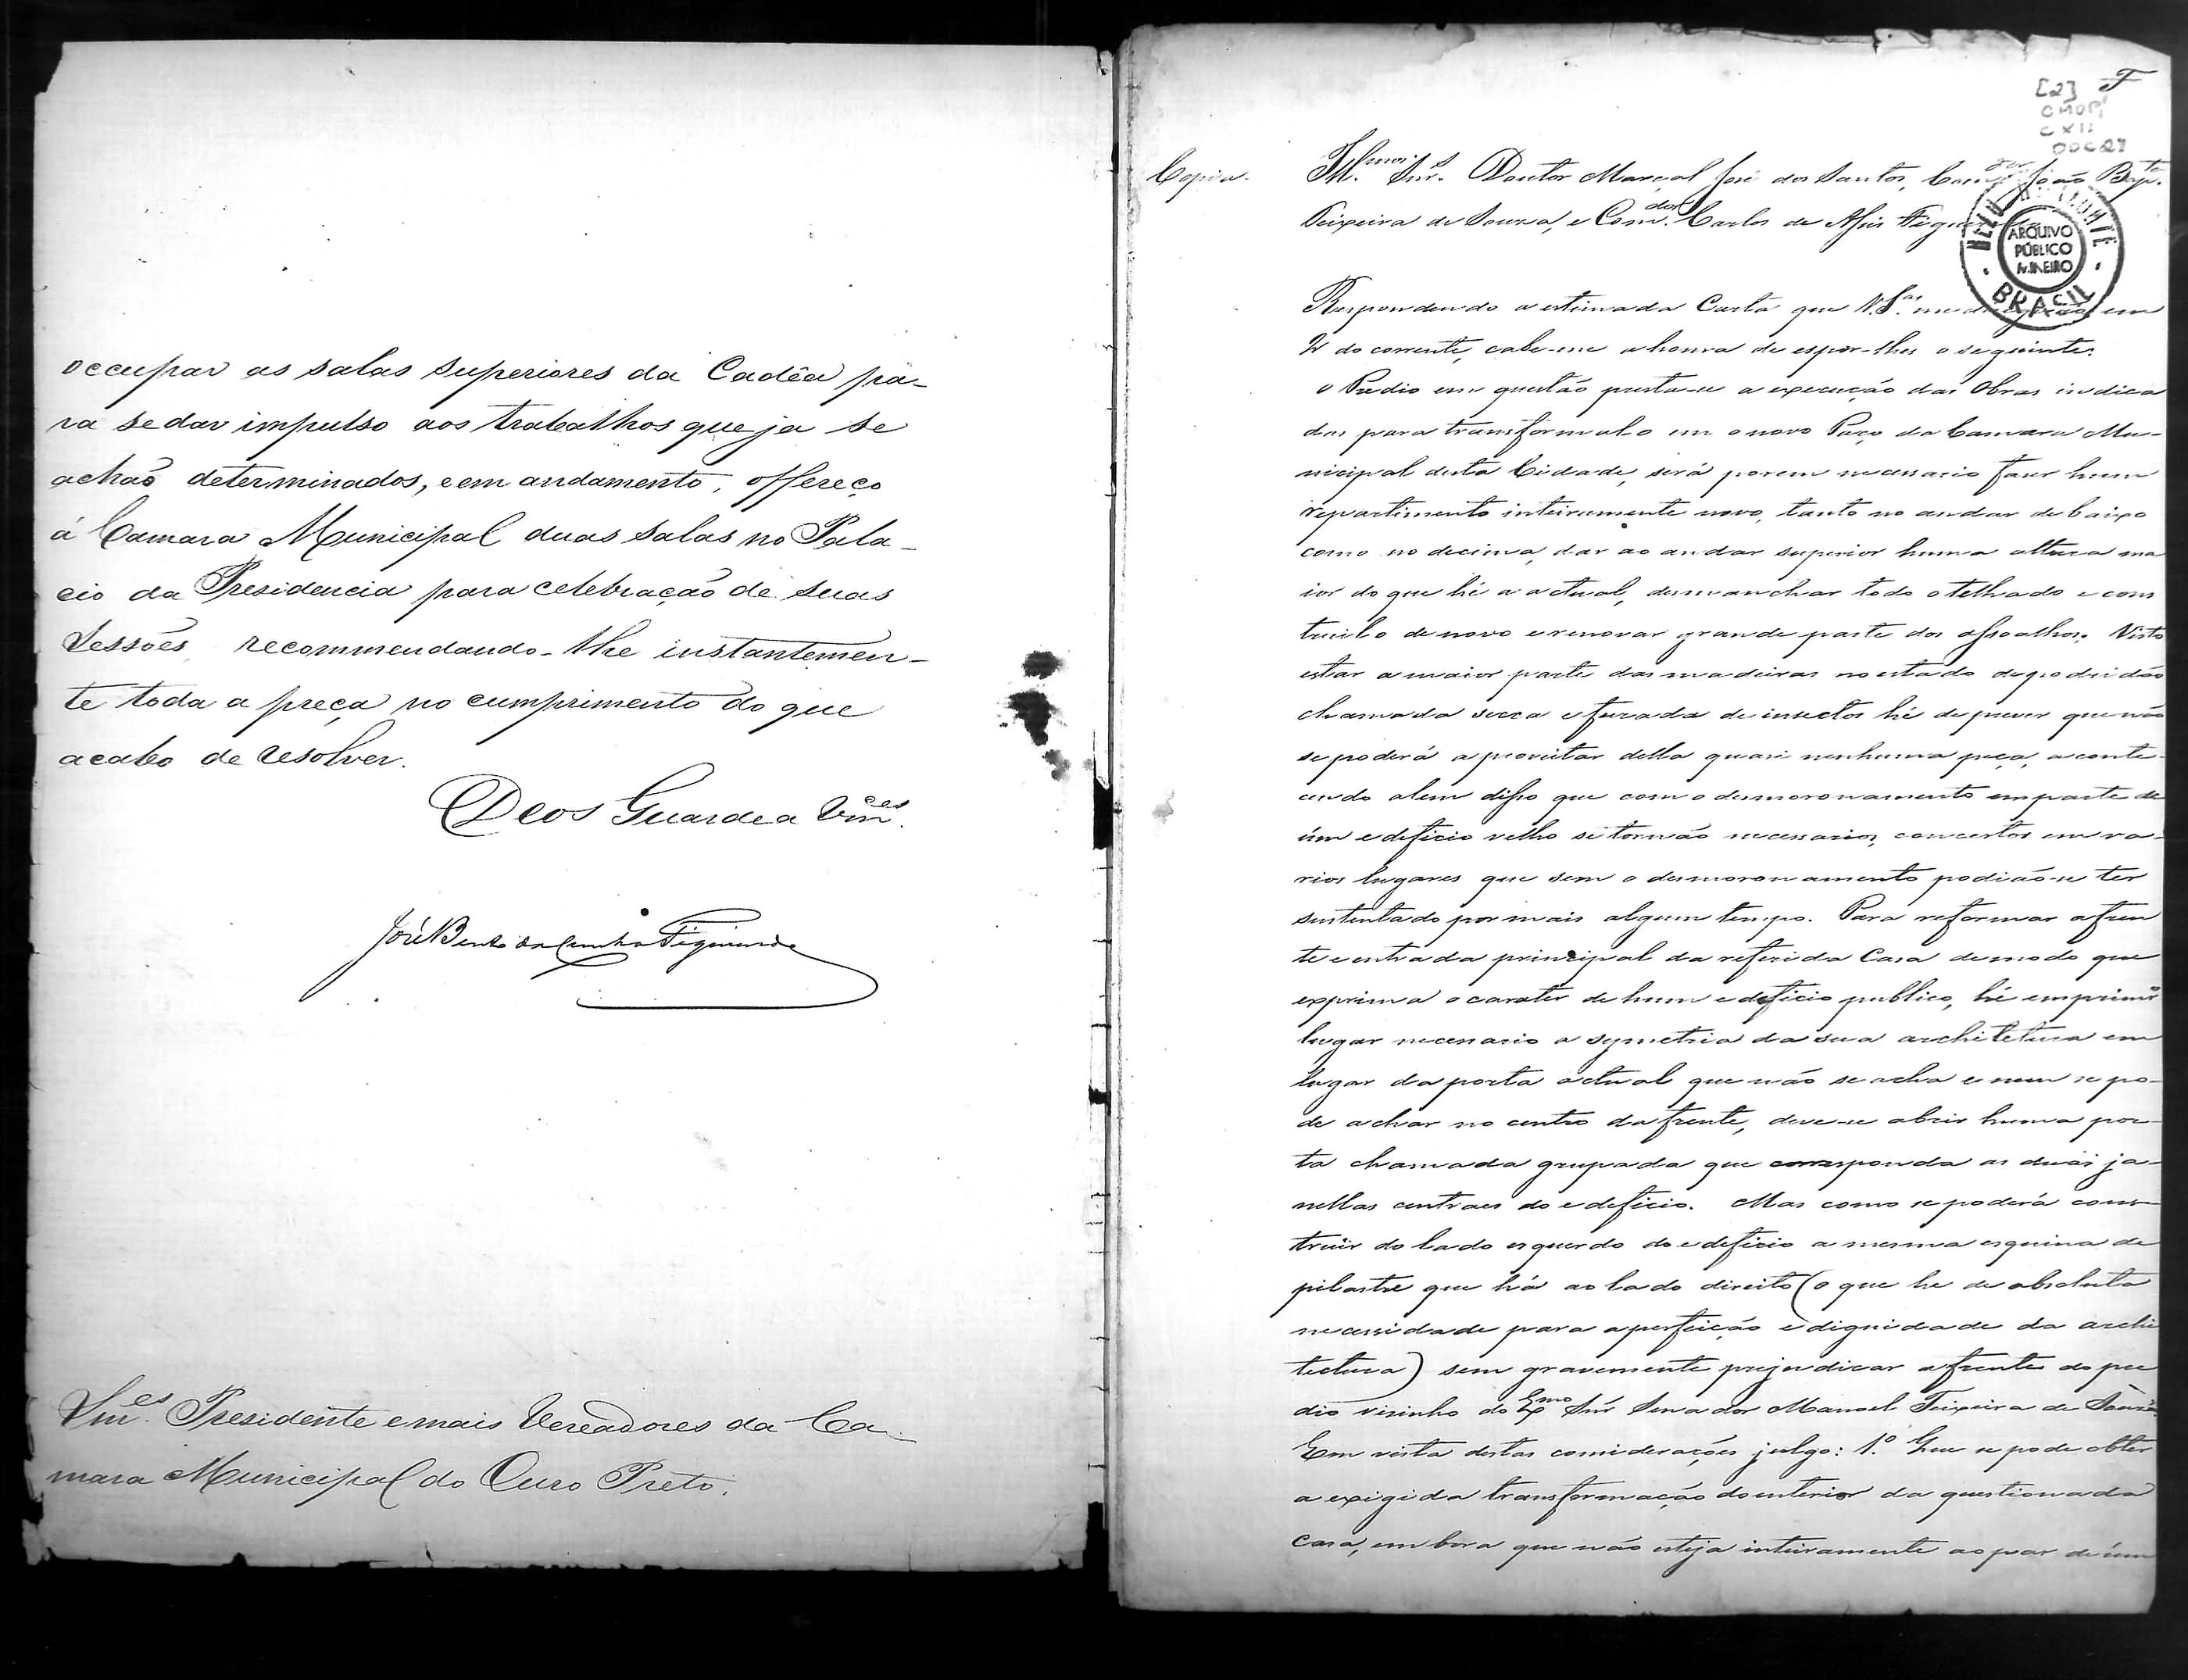 occupar as salas superiores da Cadêa pa-
ra se dar impulso aos trabalhos que ja se
achaõ determinados, e em andamento, offereço
á Camara Municipal duas salas no Pala-
cio da Presidencia para celebraçaõ de suas
Sessões recommendando-lhe instantemen-
te toda a preça no cumprimento do que
acabo de resolver.
Deos Guarde a Vm.ces
José Bento da Cunha Figueiredo
Snr.es Presidente e mais Vereadores da Ca-
mara Municipal do Ouro Preto.
[2] F
CMOP
CXII
Copia.
Ill.mos Snr.s Doutor Marçal José dos Santos, João Bap.ta
Teixeira de Souza, e Com.dor Carlos de Assis
BELLO HORIZONTE
ARQUIVO
PÚBLICO
MINEIRO
BRACIL
Respondendo a estimada Carta que V.S.as em
do corrente, cabe-me a honra de espor-lhes o seguinte:
o Predio em questão presta-se a execução das Obras indica
das para transformalo em o novo Paço da Camara Mu-
nicipal desta Cidade, será porem necessario faser hum
repartimento inteiramente novo, tanto no andar de baixo
como no de cima, dar ao andar superior huma altura ma
ior do que hé a actual, desmanchar todo o telhado e cons
truilo de novo e renovar grande parte dos assoalhos. Visto
estar a maior parte das madeiras no estado de podridão
chamada secca e furada de insectos hé de prever que não
se poderá aproveitar della quasi nenhuma peça, aconte-
cendo alem disso que com o desmoronamento em parte de
úm edeficio velho se tornão necessarios concertos em va-
rios lugares que sem o desmoronamento podião-se ter
sustentado por mais algum tempo. Para reformar a fren
te e entrada principal da referida Casa de modo que
exprima o carater de hum edeficio publico, hé em primr.o
lugar necessario a symetria da sua architetura em
lugar da porta actual que não se acha e nem se po-
de achar no centro da frente, deve-se abrir huma por-
ta chamada grupada que corresponda as duas ja-
nellas centraes do edeficio. Mas como se poderá cons-
truir do lado esquerdo do edeficio a mesma esquina de
pilastre que há ao lado direito (o que he de absoluta
necessidade para a perfeição e dignidade da archi
tectura) sem gravemente prejudicar a frente do pre
dio visinho do Ex.mo Snr Senador Manoel Teixeira de Souza.
Em vista destas considerações julgo: 1.º Que se pode obter
a exigida transformação do interior da questionada
casa, embora que não esteja inteiramente ao par de úm